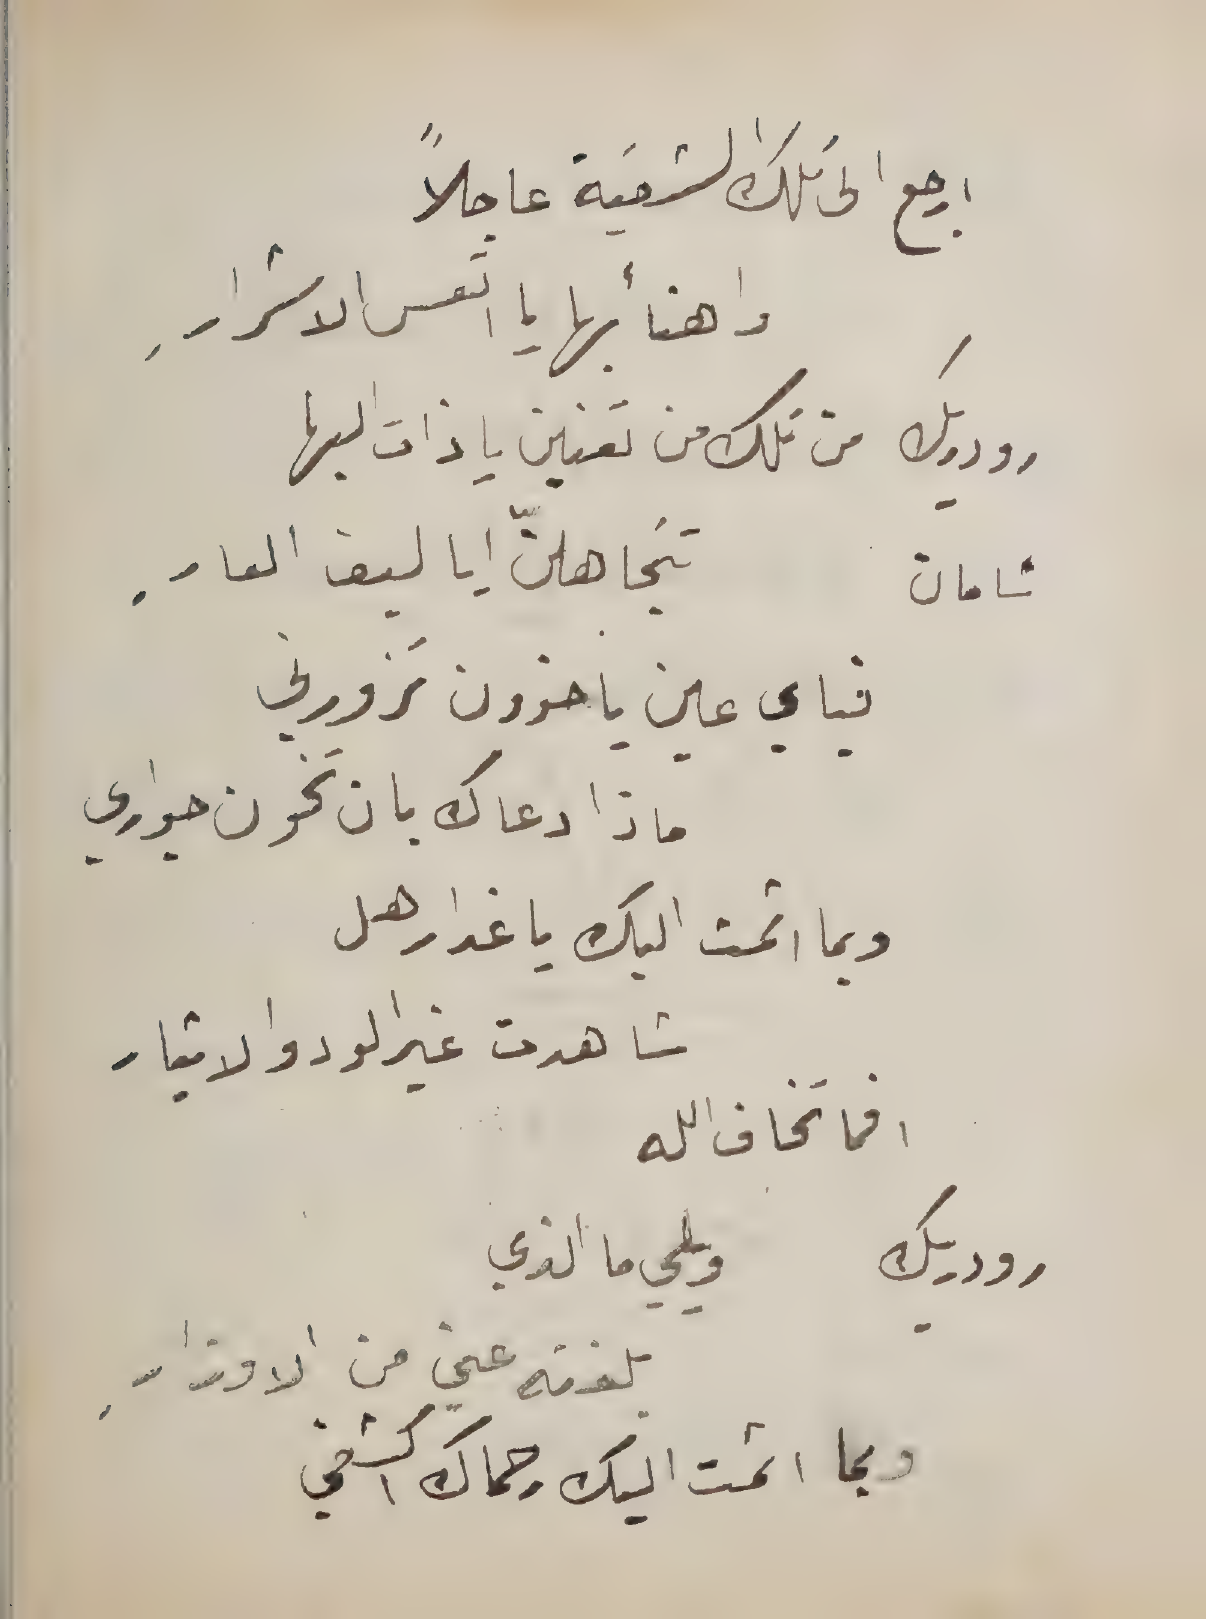 ارجع الى تلك الشقية عاجلاً
واهنأ بها يا اتعس الاشرارِ
رودريك من تلك من تعنين يا ذات البها
شامان تتجاهلنّ ايا ليف العارِ
فبأي عين يا خؤون تزورني
ماذا دعاك بان تخون جواري
وبما اثمت اليك يا غدار هل
شاهدت غير الود والايثار
افما تخاف الله
رودريك ويلي ما الذي
بلغته عني من الاوزارِ
وبما اثمت اليك رحماك اكشفي